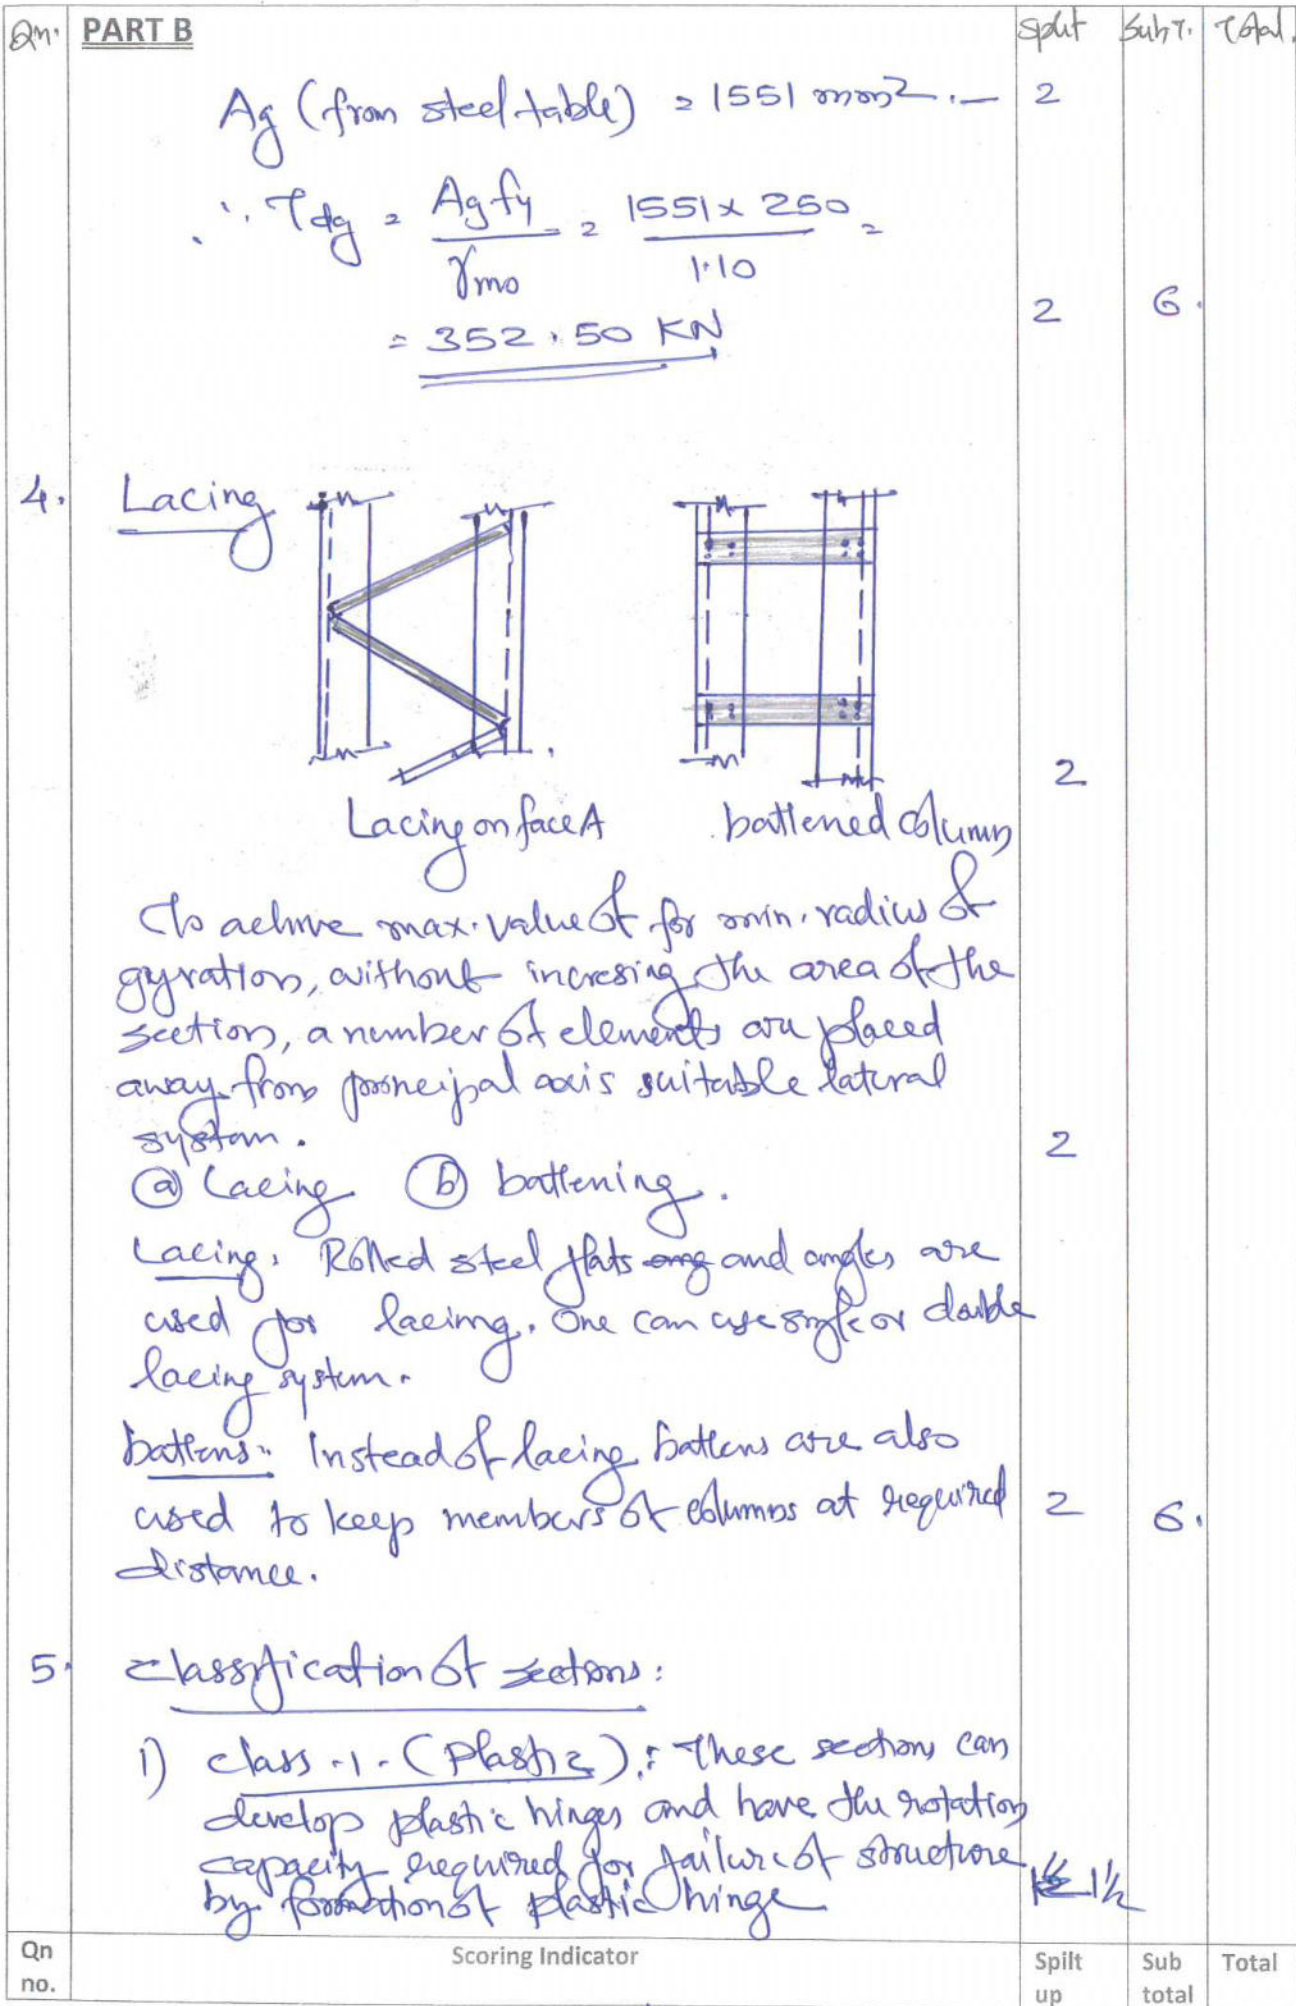 Qn. PART B Split Sub T. Total.
Ag (from steel table) = 1551 mm². — 2
∴ Tdg = Ag fy / γmo = 1551 x 250 / 1.10 =
= 352.50 KN 2 6.
4. Lacing
Lacing on face A battened column 2
To achive max. value of for min. radius of
gyration, without incresing the area of the
section, a number of elements are placed
away from principal axis suitable lateral
system. 2
(a) Lacing (b) battening.
Lacing: Rolled steel flats and angles are
used for lacing. One can use single or double
lacing system.
battens:- Instead of lacing battens are also
used to keep members of columns at required 2 6.
distance.
5. Classification of sections:
1) class -1- (Plastic): These sections can
develop plastic hinges and have the rotation
capacity required for failure of structure 1½
by formation of plastic hinge
Qn no. Scoring Indicator Spilt up Sub total Total